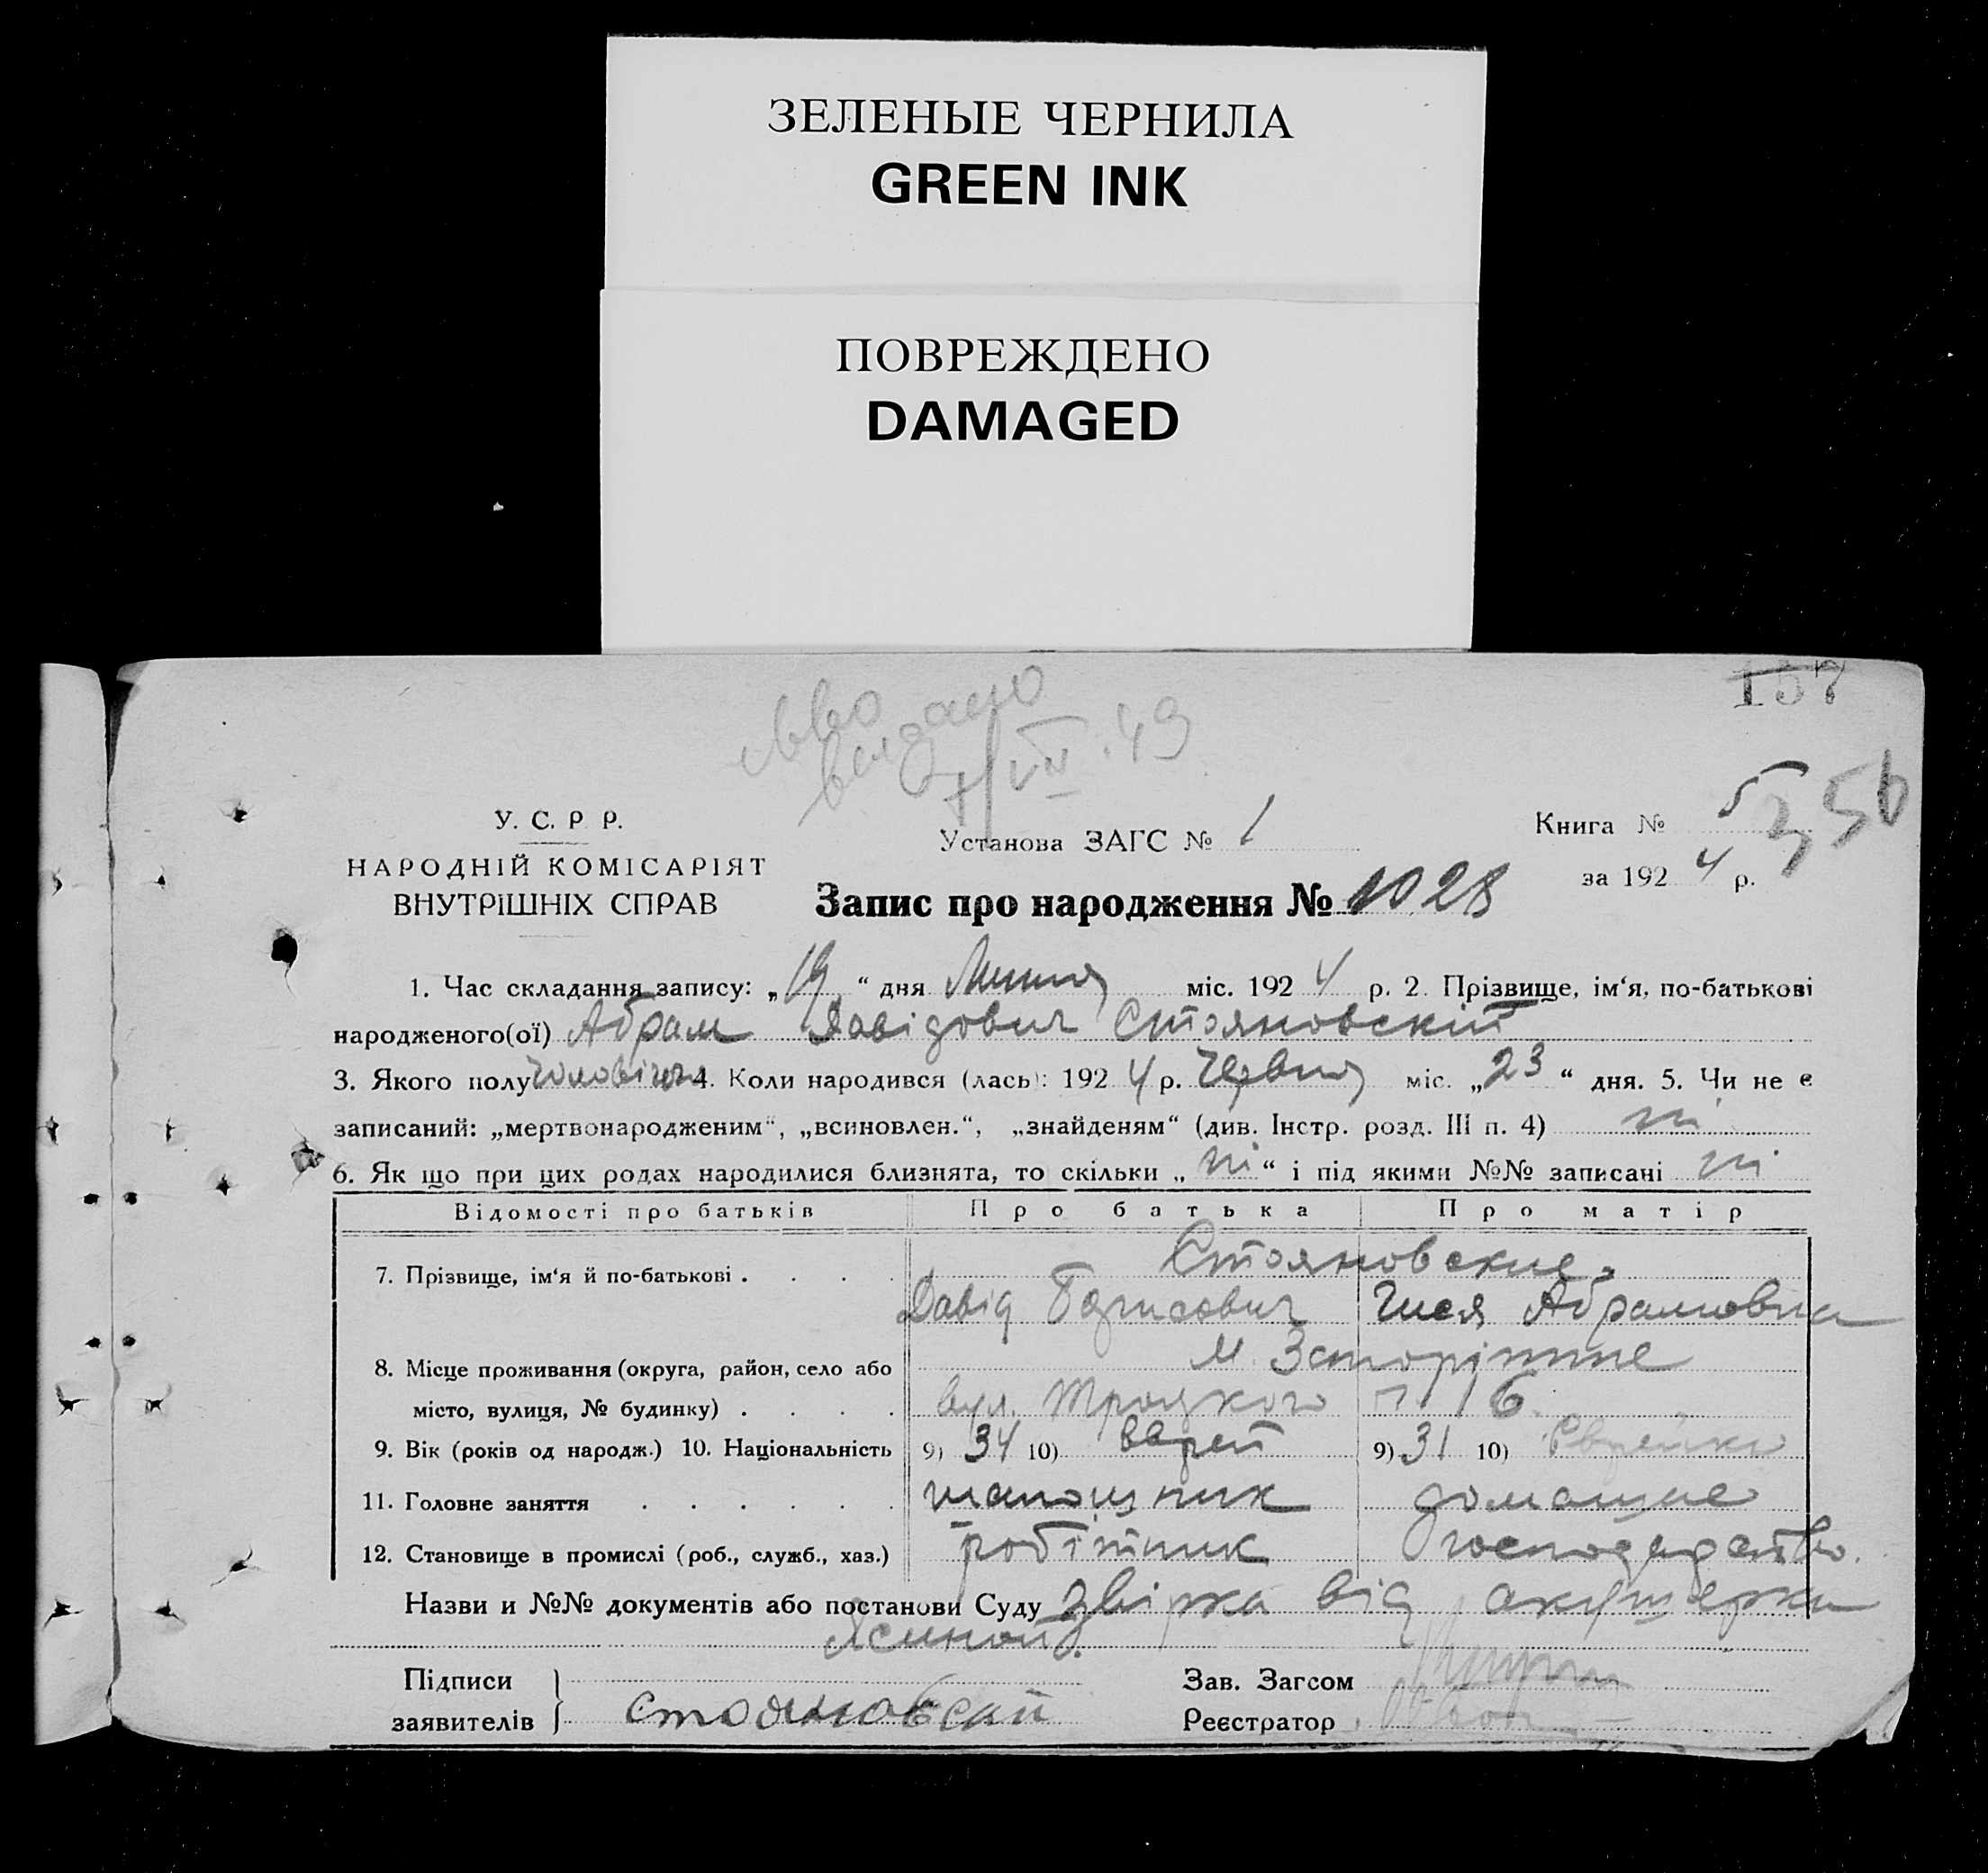 ЗЕЛЕНЫЕ ЧЕРНИЛА
GREEN INK
ПОВРЕЖДЕНО
DAMAGED
157
видано
7/VII.49
У. С. Р. Р.
НАРОДНІЙ КОМІСАРІЯТ
ВНУТРІШНІХ СПРАВ
Установа ЗАГС № 1
Книга № 5
356
за 1924 р.
Запис про народження № 1028
1. Час складання запису: „19“ дня Липня міс. 1924 р. 2. Прізвище, ім‘я, по-батькові
народженого(ої) Абрам Давідович Стояновскій
3. Якого полу чоловічого 4. Коли народився (лась): 1924 р. Червня міс. „23“ дня. 5. Чи не є
записаний: „мертвонародженим“, „всиновлен.“, „знайденям“ (див. Інстр. розд. III п. 4) ні
6. Як що при цих родах народилися близнята, то скільки „ні“ і під якими №№ записані ні
Відомості про батьків Про батька Про матір
Стояновские
7. Прізвище, ім‘я й по-батькові . . . .
Давід Борисович Гися Абрамовна
8. Місце проживання (округа, район, село або м.
місто, вулиця, № будинку) . . . . вул. Троцкого 16
9. Вік (років од народж.) 10. Національність 9) 34 10) Еврей 9) 31 10) Єврейка
11. Головне заняття . . . . . . шапошник домашне
12. Становище в промислі (роб., служб., хаз.) робітник господарство.
Назви и №№ документів або постанови Суду від акушерки
Ясиной
Підписи
заявителів
Стояновский
Зав. Загсом
Реєстратор